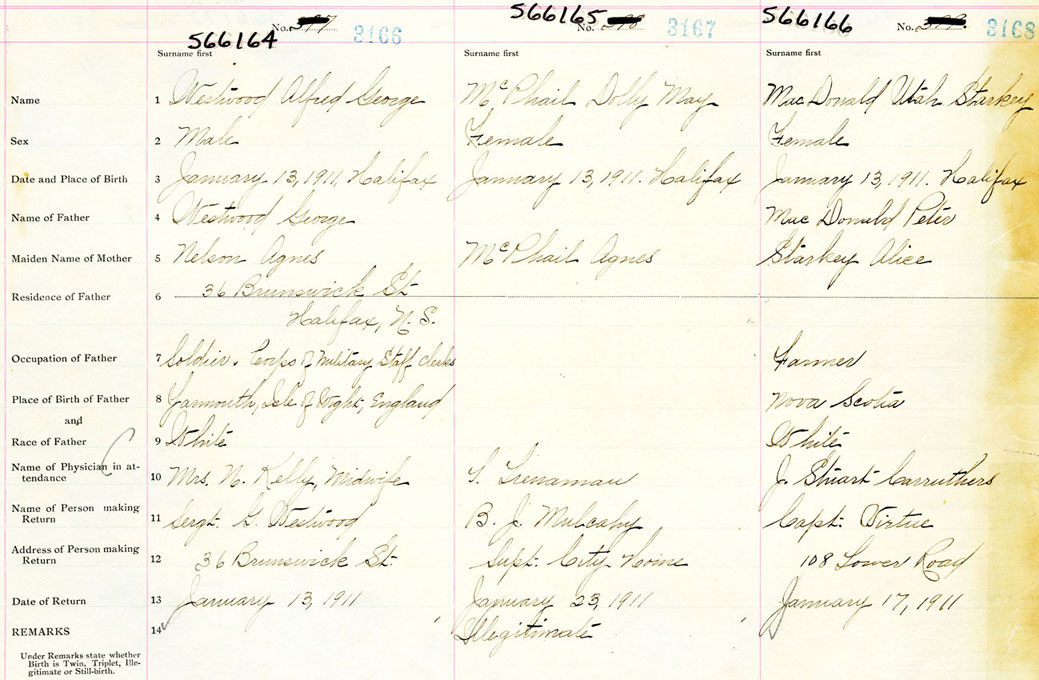 566164 No. 3166 566165 No. 3167 566166 No. 3168
Surname first Surname first Surname first
Name 1 Westwood Alfred George McPhail Dolly May Mac Donald Utah Starkey
Sex 2 Male Female Female
Date and Place of Birth 3 January 13, 1911, Halifax January 13, 1911. Halifax January 13, 1911. Halifax
Name of Father 4 Westwood George Mac Donald Peter
Maiden Name of Mother 5 Nelson Agnes McPhail Agnes Starkey Alice
Residence of Father 6 36 Brunswick St
Halifax, N. S.
Occupation of Father 7 Soldier. Corps of Military Staff Clerks Farmer
Place of Birth of Father 8 Yarmouth, Isle of Wight, England Nova Scotia
and
Race of Father 9 White White
Name of Physician in at-
tendance 10 Mrs. N. Kelly, Midwife Trenaman J. Stuart Carruthers
Name of Person making
Return 11 Sergt. G. Westwood B. J. Mulcahy Capt. Virtue
Address of Person making
Return 12 36 Brunswick St. Supt. City Home 108 Lower Road
Date of Return 13 January 13, 1911 January 23, 1911 January 17, 1911
REMARKS 14 Illegitimate
Under Remarks state whether
Birth is Twin, Triplet, Ille-
gitimate or Still-birth.